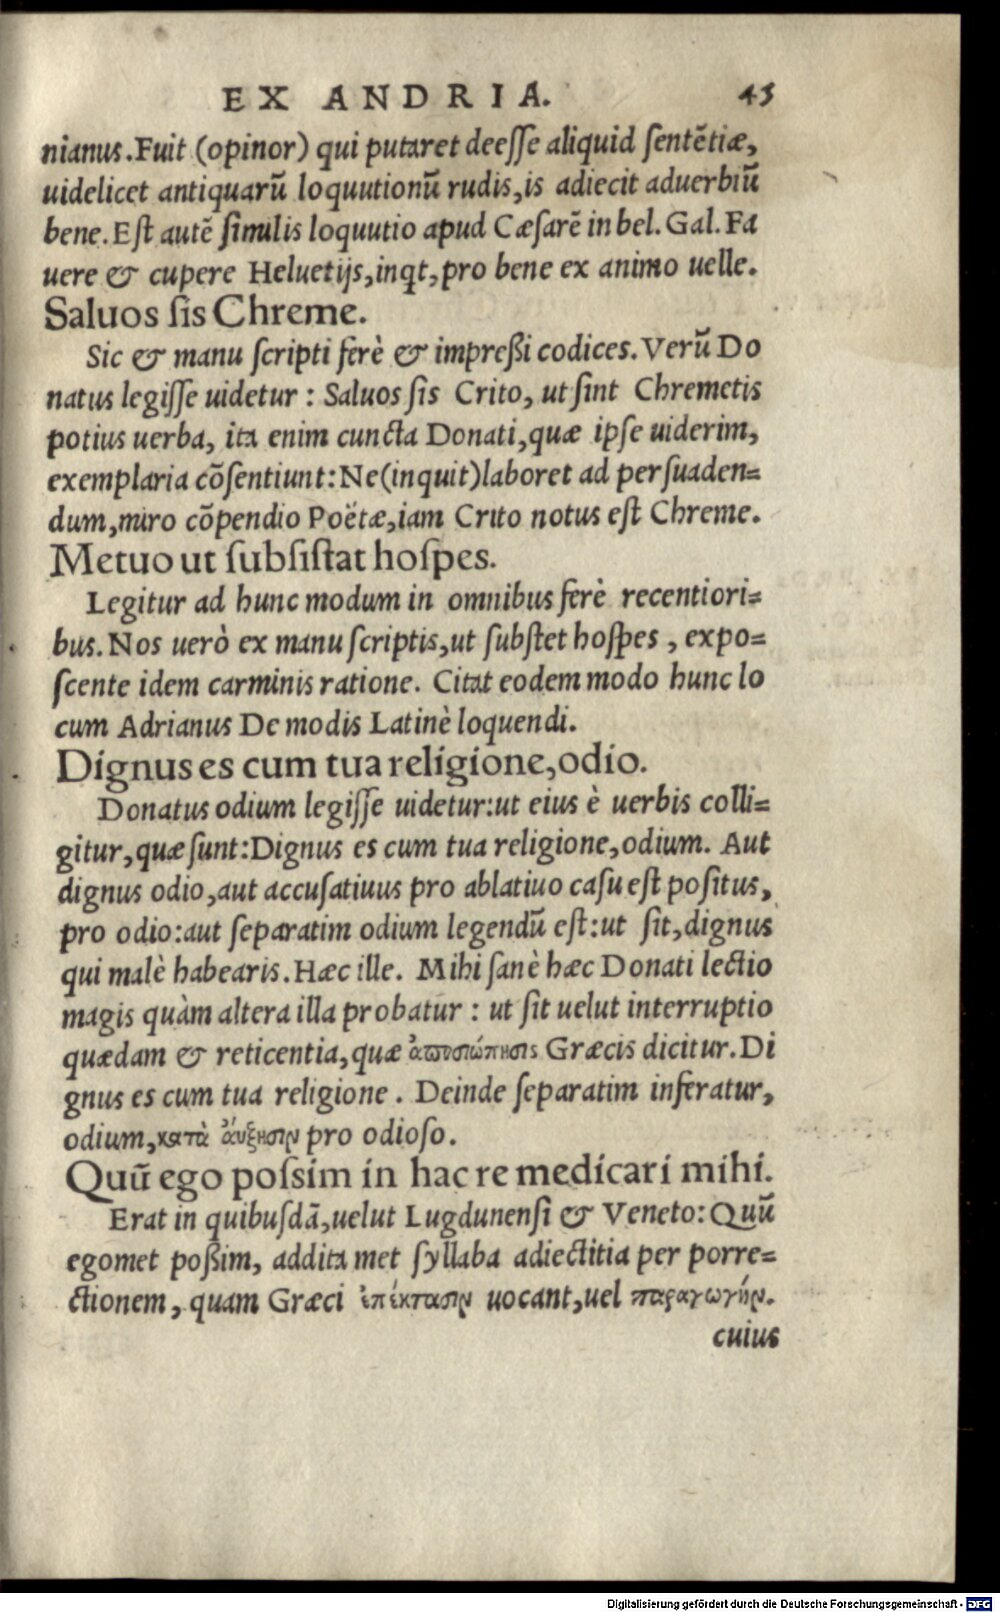 EX ANDRIA. 45
nianus. Fuit (opinor) qui putaret deesſe aliquid ſentẽtiæ,
uidelicet antiquarũ loquutionũ rudis, is adiecit aduerbiũ
bene. Eſt autẽ ſimilis loquutio apud Cæſarẽ in bel. Gal. Fa
uere & cupere Heluetijs, inqt, pro bene ex animo uelle.
Saluos ſis Chreme.
Sic & manu ſcripti ferè & impreßi codices. Verũ Do
natus legiſſe uidetur : Saluos ſis Crito, ut ſint Chremetis
potius uerba, ita enim cuncta Donati, quæ ipſe uiderim,
exemplaria cõſentiunt: Ne (inquit) laboret ad perſuaden=
dum, miro cõpendio Poëtæ, iam Crito notus eſt Chreme.
Metuo ut ſubſiſtat hoſpes.
Legitur ad hunc modum in omnibus ferè recentiori=
bus. Nos uerò ex manu ſcriptis, ut ſubſtet hoſpes, expo=
ſcente idem carminis ratione. Citat eodem modo hunc lo
cum Adrianus De modis Latinè loquendi.
Dignus es cum tua religione, odio.
Donatus odium legiſſe uidetur: ut eius è uerbis colli=
gitur, quæ ſunt: Dignus es cum tua religione, odium. Aut
dignus odio, aut accuſatiuus pro ablatiuo caſu eſt poſitus,
pro odio: aut ſeparatim odium legendũ eſt: ut ſit, dignus
qui malè habearis. Hæc ille. Mihi ſanè hæc Donati lectio
magis quàm altera illa probatur : ut ſit uelut interruptio
quædam & reticentia, quæ ἀποσιώπησις Græcis dicitur. Di
gnus es cum tua religione. Deinde ſeparatim inferatur,
odium, κατὰ ἄυξησιν pro odioſo.
Quũ ego poſsim in hac re medicari mihi.
Erat in quibuſdã, uelut Lugdunenſi & Veneto: Quũ
egomet poßim, addita met ſyllaba adiectitia per porre=
ctionem, quam Græci ἐπέκτασιν uocant, uel παραγωγήν.
cuius
Digitalisierung gefördert durch die Deutsche Forschungsgemeinschaft - DFG